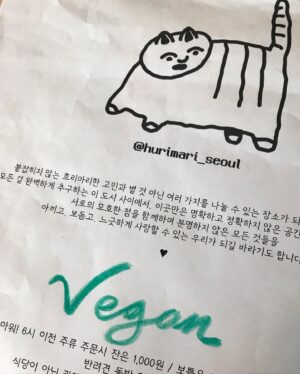 @hurimari_seoul
붙잡히지 않는 흐리마리한 고민과 별 것 아닌 여러 가지를 나눌 수 있는 장소가 되
모든 걸 완벽하게 추구하는 이 도시 사이에서, 이곳만은 명확하고 정확하지 않은 공간
서로의 모호한 점을 함께하며 분명하지 않은 모든 것들을
아끼고, 보듬고, 느긋하게 사랑할 수 있는 우리가 되길 바라기도 합니다
♥
Vegan
아워! 6시 이전 주류 주문시 잔은 1,000원 / 보틀은
반려견 동반
식당이 아닌